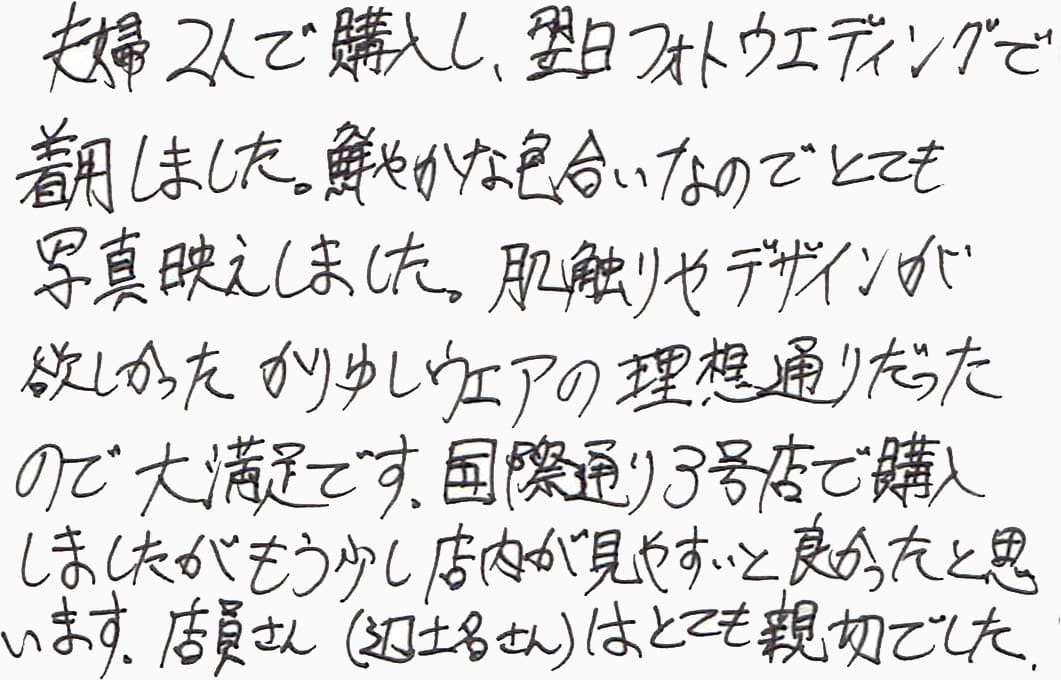 夫婦2人で購入し、翌日フォトウエディングで
着用しました。鮮やかな色合いなのでとても
写真映えしました。肌触りやデザインが
欲しかったかりゆしウェアの理想通りだった
ので大満足です。国際通り3号店で購入
しましたがもう少し店内が見やすいと良かったと思
います。店員さん(辺土名さん)はとても親切でした。